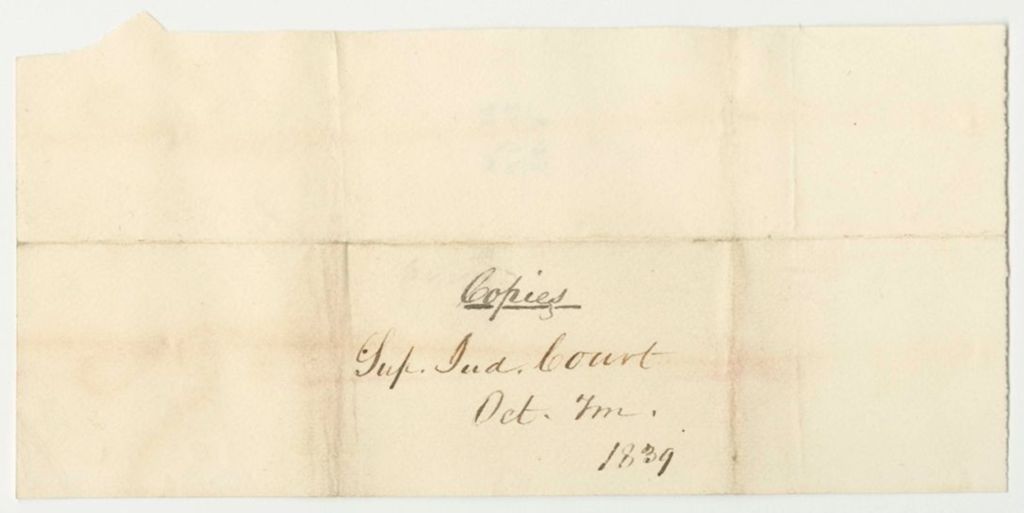 Copies
Sup. Jud. Court
Oct. Tm.
1839